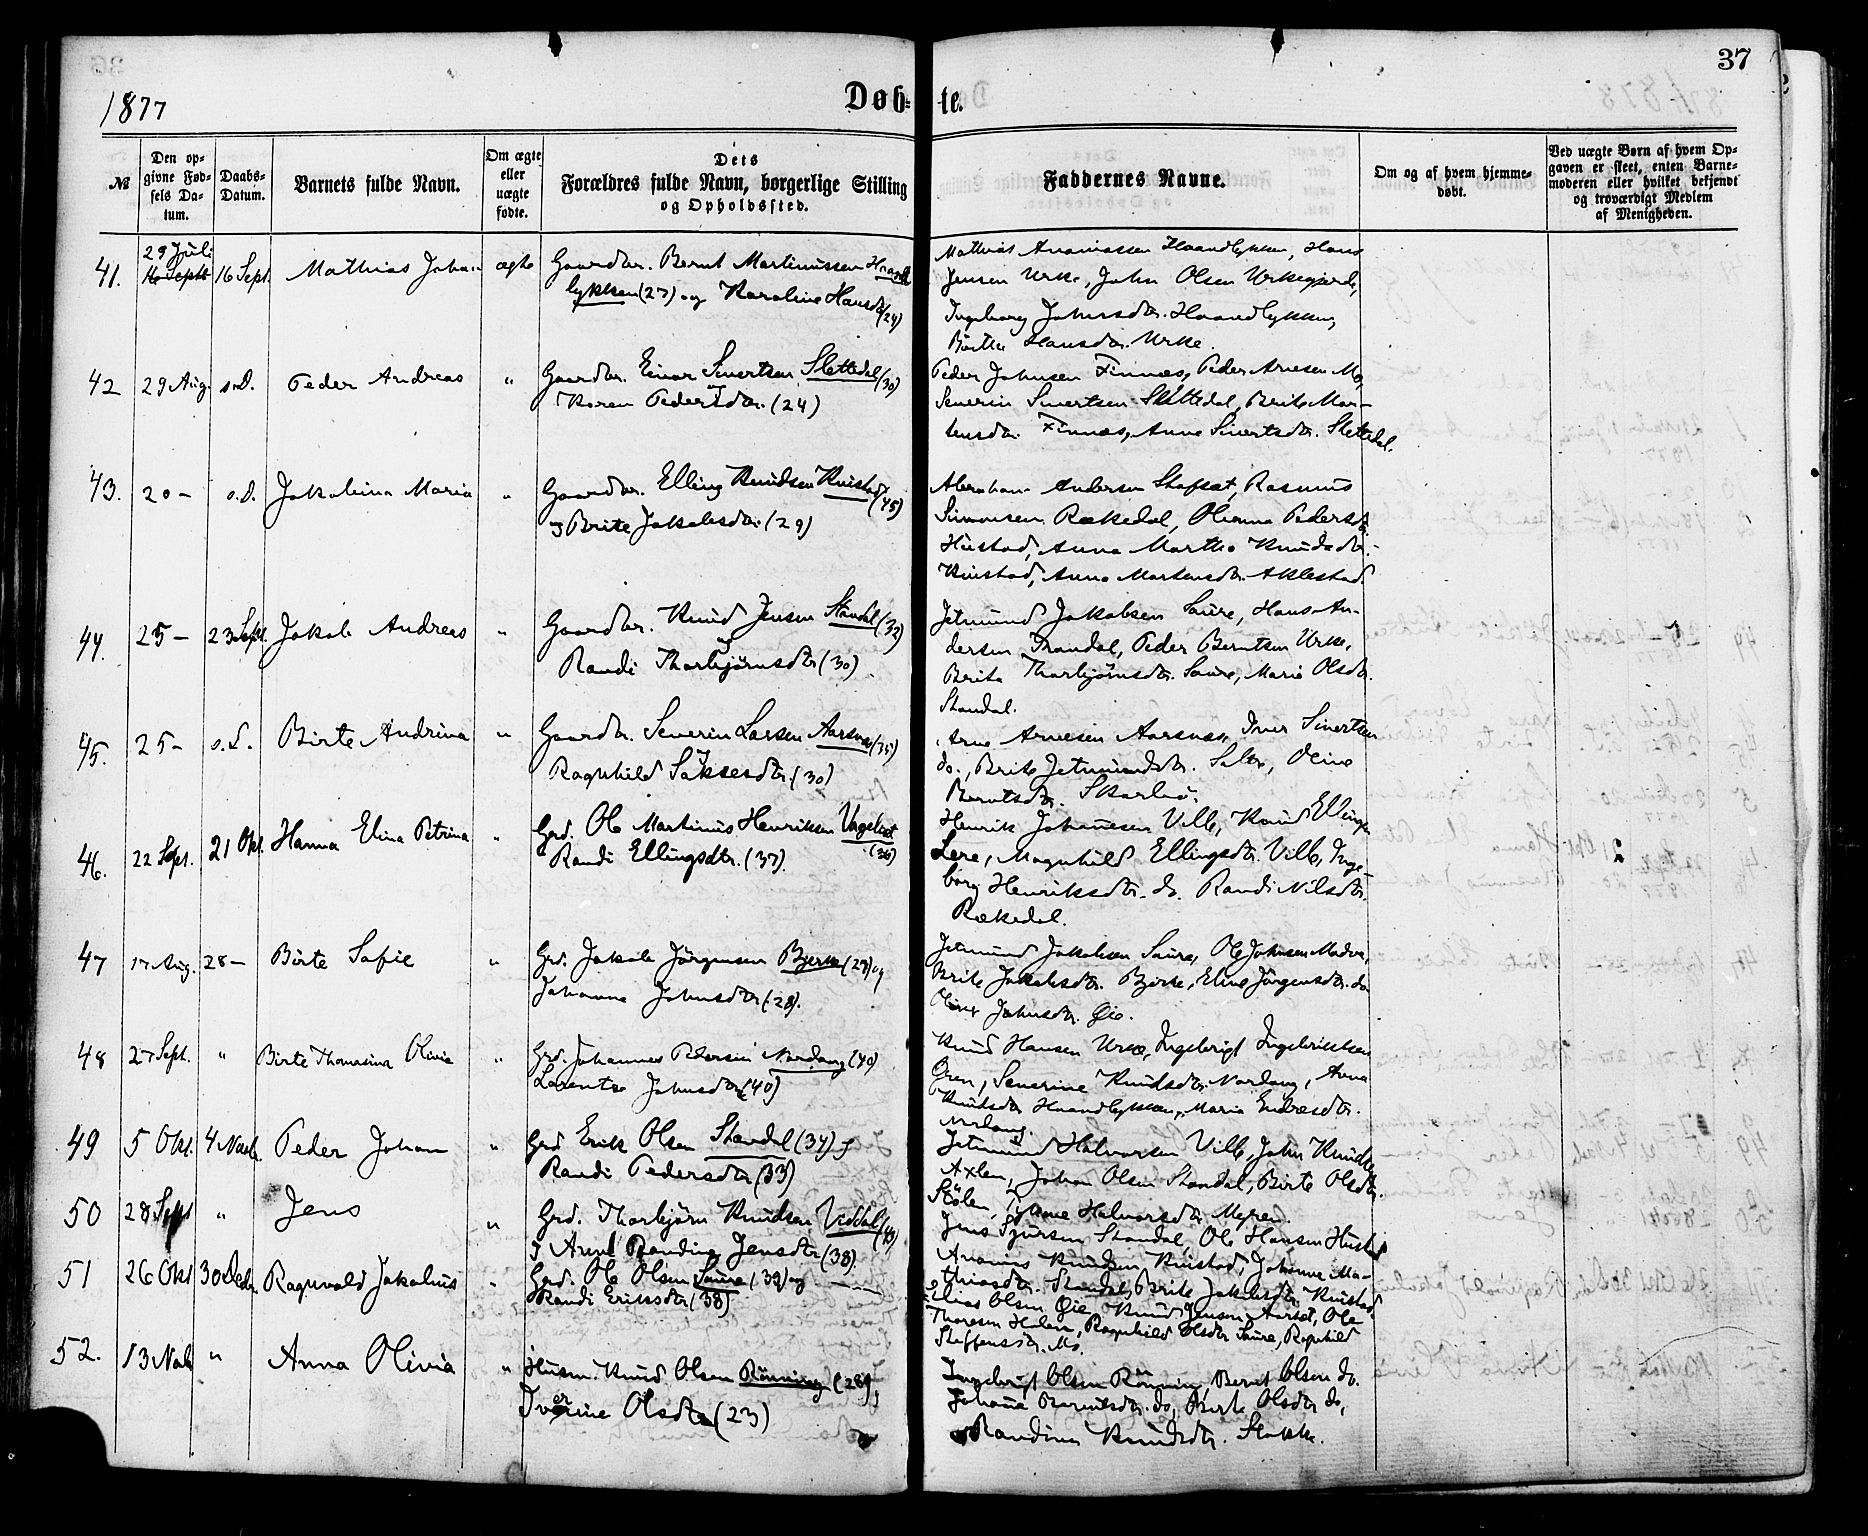 37
1877
Døb-te.
№
Den op-
givne Fød-
sels Da-
tum.
Daabs-
Datum.
Barnets fulde Navn.
Om ægte
eller
uægte
fødte.
Dets
Forældres fulde Navn, borgerlige Stilling
og Opholdssted.
Faddernes Navne.
Om og af hvem hjemme-
døbt.
Ved uægte Børn af hvem Op-
gaven er skeet, enten Barne-
moderen eller hvilket bekjendt
og troværdigt Medlem
af Menigheden.
41.
29 Juli
16 Sept.
16 Sept.
Mathias Johan
ægte
Gaardbr. Bernt Martinussen Haand-
lykken (27) og Karoline Hansdtr (24)
Mathias Ananiassen Haandlykken, Hans
Jensen Urke, John Olsen Urkegjerde,
Ingeborg Johnsdtr. Haandlykken,
Birthe Hansdtr. Urke.
42
29 Aug.
s.D.
Peder Andreas
"
Gaardbr. Einar Sivertsen Slettedal (30)
Karen Pedersdtr. (24)
Peder Johnsen Finnæs, Peder Arnesen Mo,
Severin Sivertsen Slettedal, Brite Mar-
tensdtr. Finnæs, Anne Sivertsdtr. Slettedal.
43.
20 –
s.d.
Jakobina Maria
"
Gaardbr. Elling Knudsen Kvistad (45)
og Brite Jakobsdtr. (29)
Abraham Andersen Skafsæt, Rasmus
Simonsen Rækedal, Olianna Pedersdtr.
Hustad, Anna Martha Knudsdtr.
Kvistad, Anna Martensdtr. Aklestad.
44.
25 –
23 Sept.
Jakob Andreas
"
Gaardbr. Knud Jensen Standal (32)
Randi Thorbjörnsdtr (30)
Jetmund Jakobsen Saure, Hans An-
dersen Trandal, Peder Berntsen Urke,
Brita Thorbjörnsdtr. Saure, Marie Olsdtr.
Standal.
45.
25 –
s.D.
Birte Andrina
"
Gaardbr. Severin Larsen Aarsnæs (35)
Ragnhild Saksesdtr (30)
Arne Arnesen Aarsnæs, Iver Sivertsen
do., Brite Jetmundsdtr. Sætre, Oline
Berntsdtr. Skarbø.
46.
22 Sept.
21 Okt.
Hanna Elina Petrina
"
Grd. Ole Martinus Henriksen (36)
Randi Ellingsdtr. (37)
Henrik Johannesen Villa, Knud Ellingsen
Lere, Magnhild Ellingsdtr. Villa, Inge-
borg Henriksdtr. do. Randi Nilsdtr.
Rækedal.
47
17 Aug.
28 –
Birte Sofie
"
Grd. Jakob Jörgensen Bjerke (29) og
Johanna Johnsdtr (28).
Jetmund Jakobsen Saure, Ole Johnsen
Brite Jakobsdtr. Bjerke, Eline Jörgensdtr. do
Johnsdtr. Øie.
48
27 Sept.
"
Birte Thomasina Olivia
"
Grd. Johannes Pedersen Nordang (40)
Lorentse Johnsdtr (40)
Knud Hansen Urke, Ingebrigt Ingebrigtsen
Gren, Severine Knudsdtr. Nordang, Anna
Knudsdtr Haandlykken, Maria Endresdtr.
Nordang.
49
5 Okt.
4 Novb.
Peder Johan
"
Grd Erik Olsen Standal (34) og
Randi Pedersdtr (33)
Jetmund Halvorsen Villa, John Knudsen
Axlen, Johan Olsen Standal, Birte Olsdtr.
Stölen, Halvorsdtr. Myren.
50
28 Sept
"
Jens
"
Grd. Thorbjörn Knudsen Viddal
Randine Jensdtr (38)
Jens Sjursen Standal, Ole Hansen Hustad
Ananias Knudsen Kvistad, Johanne Ma-
thiasdtr. Standal, Brite Jakobsdtr. Kvistad
51
26 Okt
30 Decbr.
Ragnvald Jakobius
"
Grd. Ole Olsen Saure (39) og
Randi Eriksdtr (38)
Elias Olsen Øie, Knud Jensen Aarset, Ole
Thoresen Ragnhild Olsdtr Saure, Ragnhild
Steffensdtr. Mo.
52.
13 Novb
"
Anna Olivia
"
Husm. Knud Olsen Rönning (28),
Iverine Olsdtr (23)
Ingebrigt Olsen Rönning, Bernt Olsen do.
Johanne Berntsdtr. do, Birte Olsdtr do,
Randine Knudsdtr. Slokke.